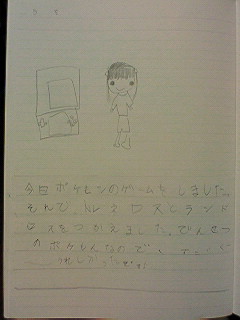 今日ポケモンのゲームをしました。
それで、トルネロスとランド
ロスをつかえました。でんせつ
のポケモンなので、
うれしかったです。